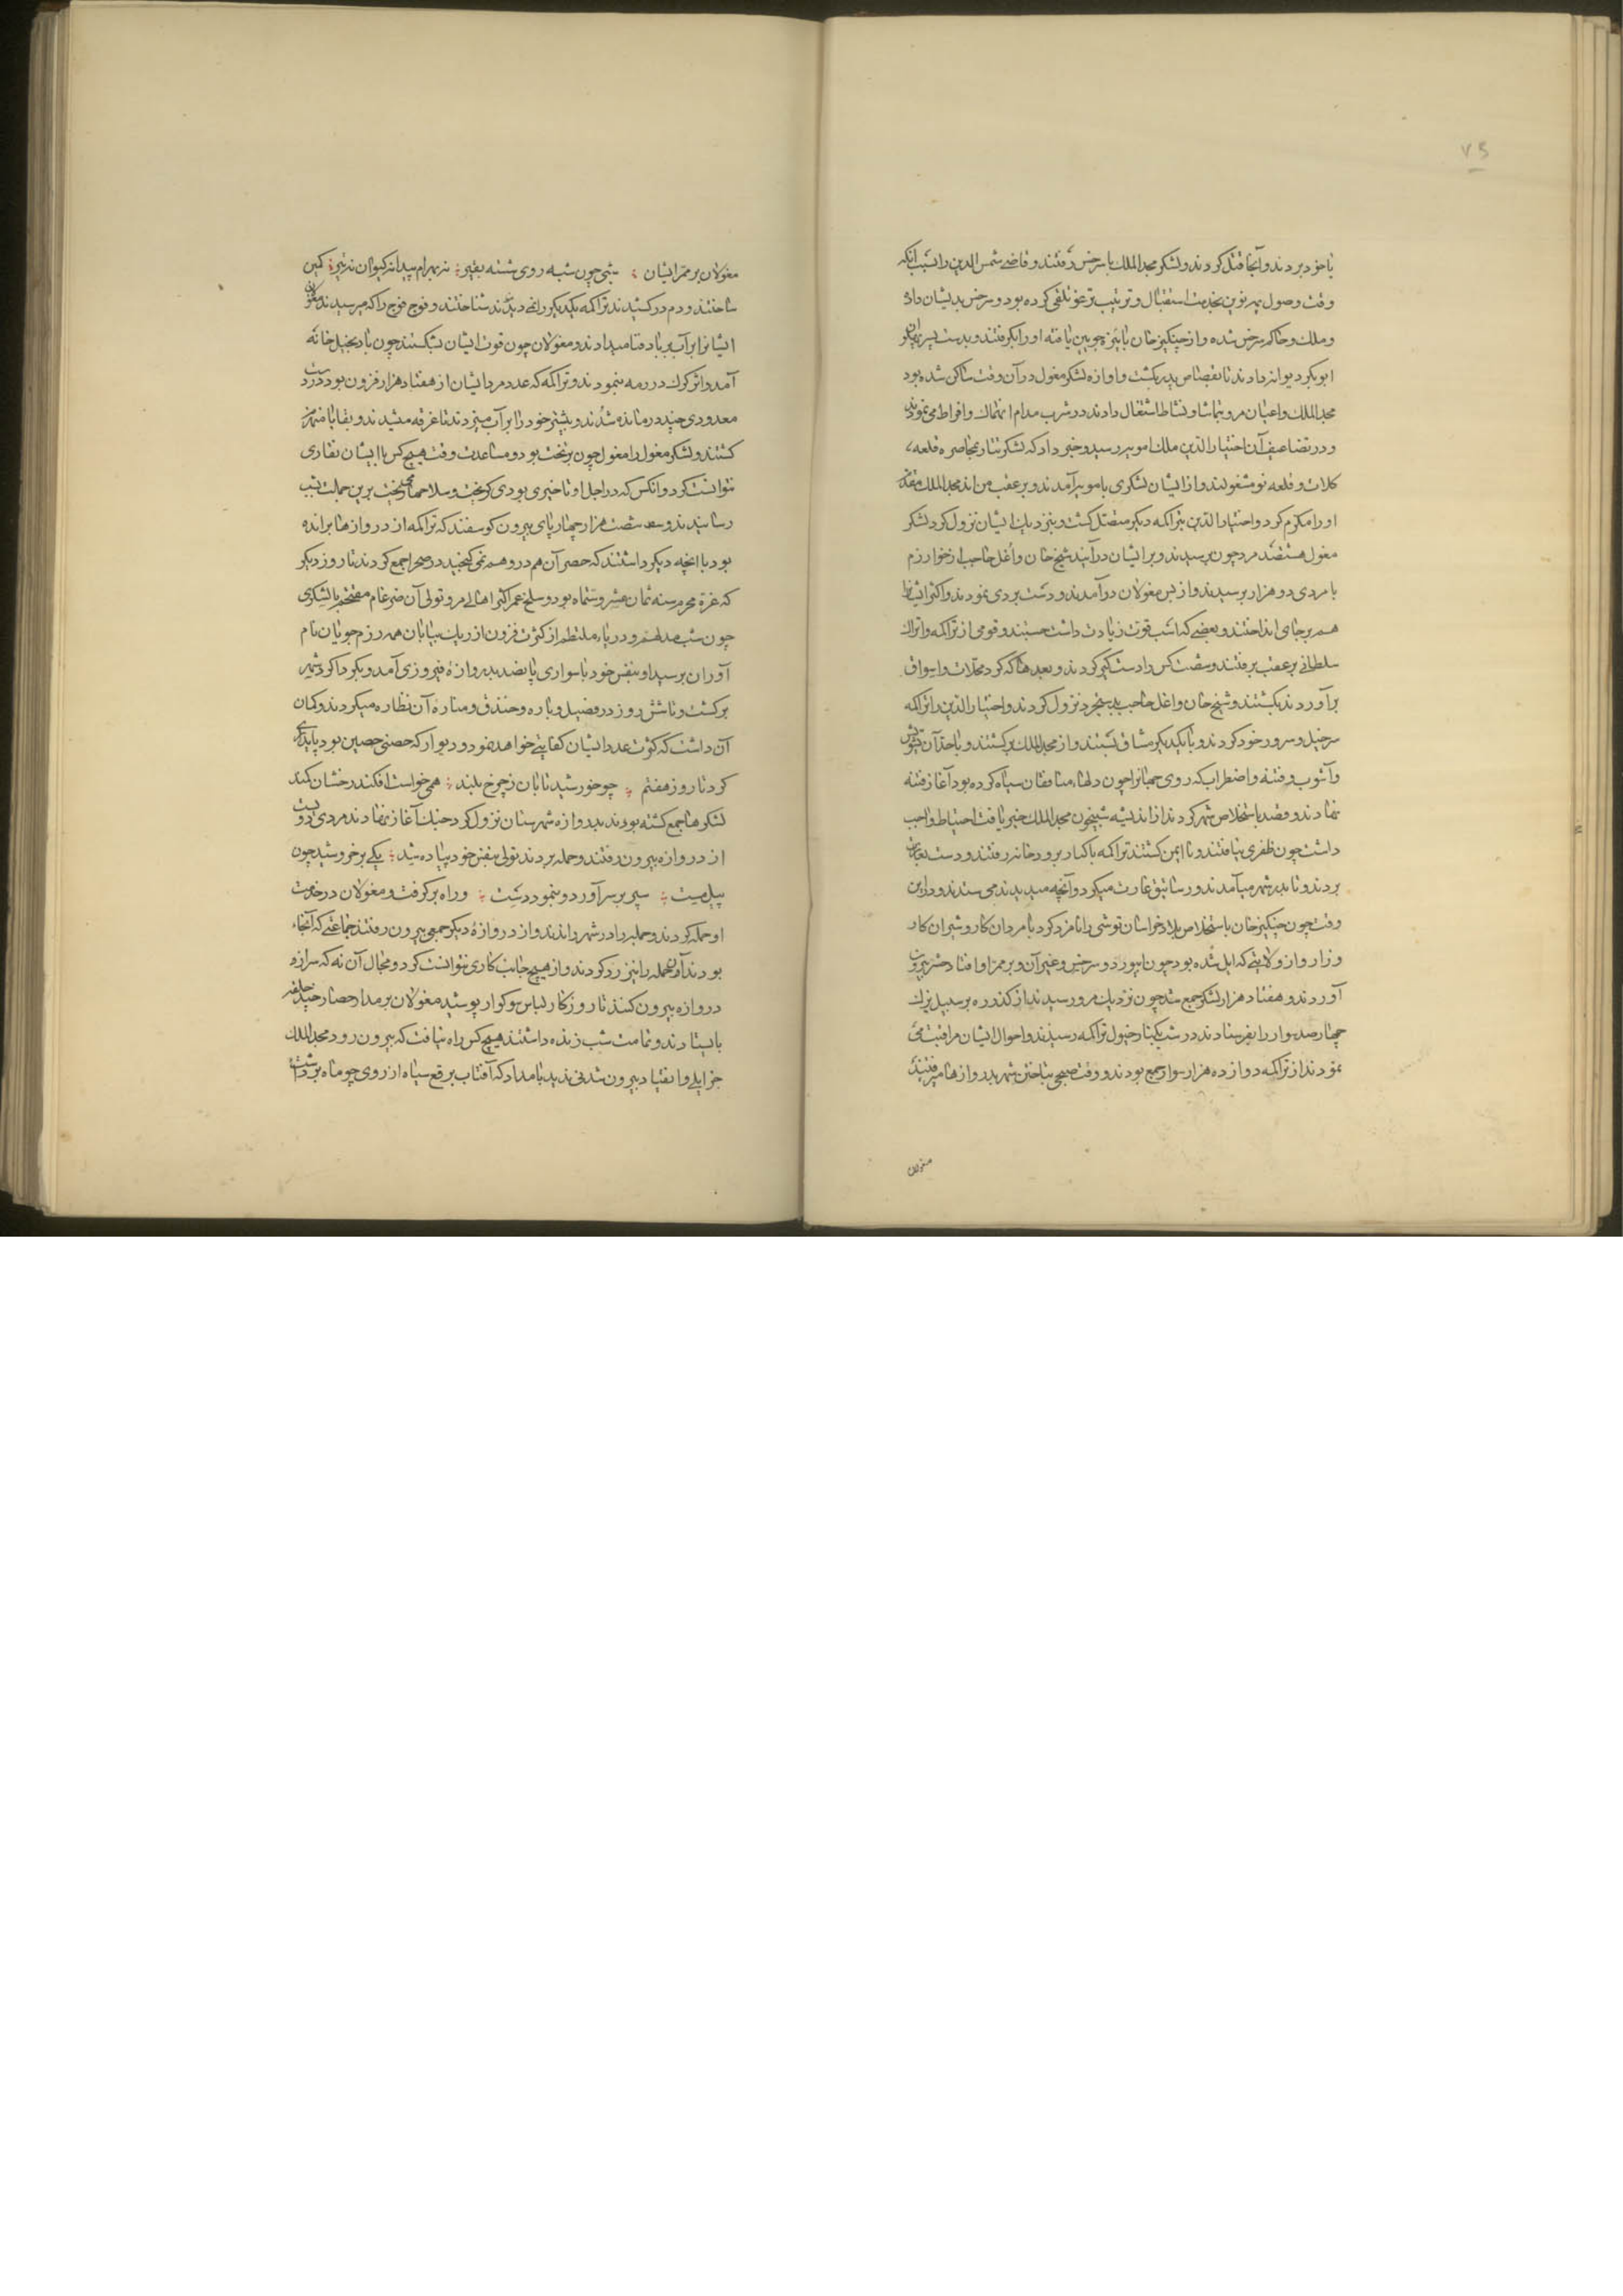 ۷۵
با خود بردند و آنجا قتل کردند و لشکر مجد الملک با سرخس رفتند و قاضی شمس الدین را بسبب انکه
وقت وصول یمه نوین بخدمت استقبال و ترتیب ترغو تلقی کرده بود و سرخس بدیشان داده
و ملک و حاکم سرخس شده و از چینکیز خان بایزه چوبین یافته او را بکرفتند و بدست پسر پهلوان
ابو بکر دیوانه دادند تا بقصاص پدر بکشت و اوازه لشکر مغول در آن وقت ساکن شده بود
مجد الملک و اعیان مرو بتماشا و نشاط اشتغال دادند و در شرب مدام انهماک و افراط می نمودند
و در تضاعیف آن اختیار الدین ملک امویه رسید و خبر داد که لشکر تتار بمحاصره قلعه
کلات و قلعه نو مشغولند و از ایشان لشکری بامویه آمدند و بر عقب من اند مجد الملک مقدم
او را مکرم کرد و اختیار الدین بتراکمه دیکر متصل کشت و بنزدیک ایشان نزول کرد لشکر
مغول هشتصد مرد چون برسیدند و بر ایشان در آیند شیخ خان و اغل حاجب از خوارزم
با مردی دو هزار برسیدند و از پس مغولان در آمدند و دست بردی نمودند و اکثر ایشانرا
هم بر جای انداختند و بعضی که اسب قوت زیادت داشت جستند و قومی از تراکمه و اتراک
سلطانی بر عقب برفتند و شصت کس را دست کیر کردند و بعدها که کرد محلات و اسواق
برآوردند بکشتند و شیخ خان و اغل حاجب بدستجرد نزول کردند و اختیار الدین را تراکمه
سرخیل و سرور خود کردند و با یکدیکر میثاق بستند و از مجد الملک برکشتند و با حد آن تشویش
و آشوب و فتنه و اضطراب که روی جهانرا چون دلهاء منافقان سیاه کرده بود آغاز فتنه
نهادند و قصد باستخلاص شهر کردند از اندیشه شبیخون مجد الملک خبر یافت احتیاط واجب
داشت چون ظفری نیافتند و نا ایمن کشتند تراکمه با کنار رودخانه رفتند و دست بغارت
بردند و تا بدر شهر میآمدند و رساتیق غارت میکرد و آنچه میدیدند می ستدند و در این
وقت چون چنکیز خان باستخلاص بلاد خراسان توشی را نامزد کرد با مردان کار و شیران کار
و زار و از ولایتی که ایل شده بود چون ابیورد و سرخس و غیر آن و بر ممر او افتاد حشر بیرون
آوردند و هفتاد هزار لشکر جمع شد چون نزدیک مرو رسیدند از کذوره بر سبیل یزک
چهار صد سوار را بفرستادند در شب بکنار خیول تراکمه رسیدند و احوال ایشان مراقبت می
نمودند از تراکمه دوازده هزار سوار جمع بودند و وقت صبحی بتاختن شهر بدروازها میرفتند
مغولان
مغولان بر ممر ایشان شبی چون شبه روی شسته بقیر نه بهرام پیدا نه کیوان نه تیر کمین
ساختند و دم در کشیدند تراکمه یکدیکر را نمی دیدند شناختند و فوج فوج را که میرسیدند مغولان
ایشانرا بر آب بر باد فنا میدادند و مغولان چون قوت ایشان بشکستند چون باد بخیل خانه
آمد و اثر کرک در رمه بنمودند و تراکمه که عدد مرد ایشان از هفتاد هزار فزون بود در دست
معدودی چند در مانده شدند و بیشتر خود را بر آب میزدند تا غرقه میشدند و بقایا منهزم
کشتند و لشکر مغول را مغول چون بر بخت بود و مساعدت وقت هیچ کس با ایشان نقاری
نتوانست کرد و انکس که در اجل او تاخیری بودی کریخت و سلاحها میریخت برین جملت شب
رسانیدند و شصت هزار چهار پای بیرون کوسفند که تراکمه از دروازها برانده
بود با انچه دیکر داشتند که حصر آن هم در وهم نمی کنجید در صحرا جمع کردند تا روز دیکر
که غره محرم سنه ثمان عشر و ستمایه بود و سلخ عمر اکثر اهالی مرو تولی آن ضرغام مقتحم با لشکری
چون شب مدلهم و دریاء ملتطم از کثرت فزون از ریک بیابان همه رزم جویان نام
آوران برسید او بنفس خود با سواری پانصد بدروازه فیروزی آمد و بکرداکرد شهر
برکشت و تا شش روز در فصیل و باره و خندق و مناره آن نظاره میکردند و کمان
آن داشت که کثرت عدد ایشان کفایتی خواهد نمود و دیوار که حصنی حصین بود پایداری
کرد تا روز هفتم چو خورشید تابان ز چرخ بلند همی خواست افکند رخشان کمند
لشکرها جمع کشته بودند بدروازه شهرستان نزول کرد جنک آغاز نهادند مردی دویست
از دروازه بیرون رفتند و حمله بردند تولی بنفس خود پیاده شد یکی بر خروشید چون
پیل مست سپر بر سر آورد و بنمود دست و راه بر کرفت و مغولان در خدمت
او حمله کردند و حمله را در شهر راندند و از دروازه دیکر جمعی بیرون رفتند جماعتی که آنجا
بودند آن حمله را نیز رد کردند و از هیچ جانب کاری نتوانست کرد و مجال آن نه که سر از ره
دروازه بیرون کنند تا روزکار لباس سوکوار پوشید مغولان بر مدار حصار چند حلقه
بایستادند و تمامت شب زنده داشتند هیچ کس راه نیافت که بیرون رود مجد الملک
جز ایلی و انقیاد بیرون شدنی ندید بامداد که آفتاب برقع سیاه از روی چو ماه برداشت